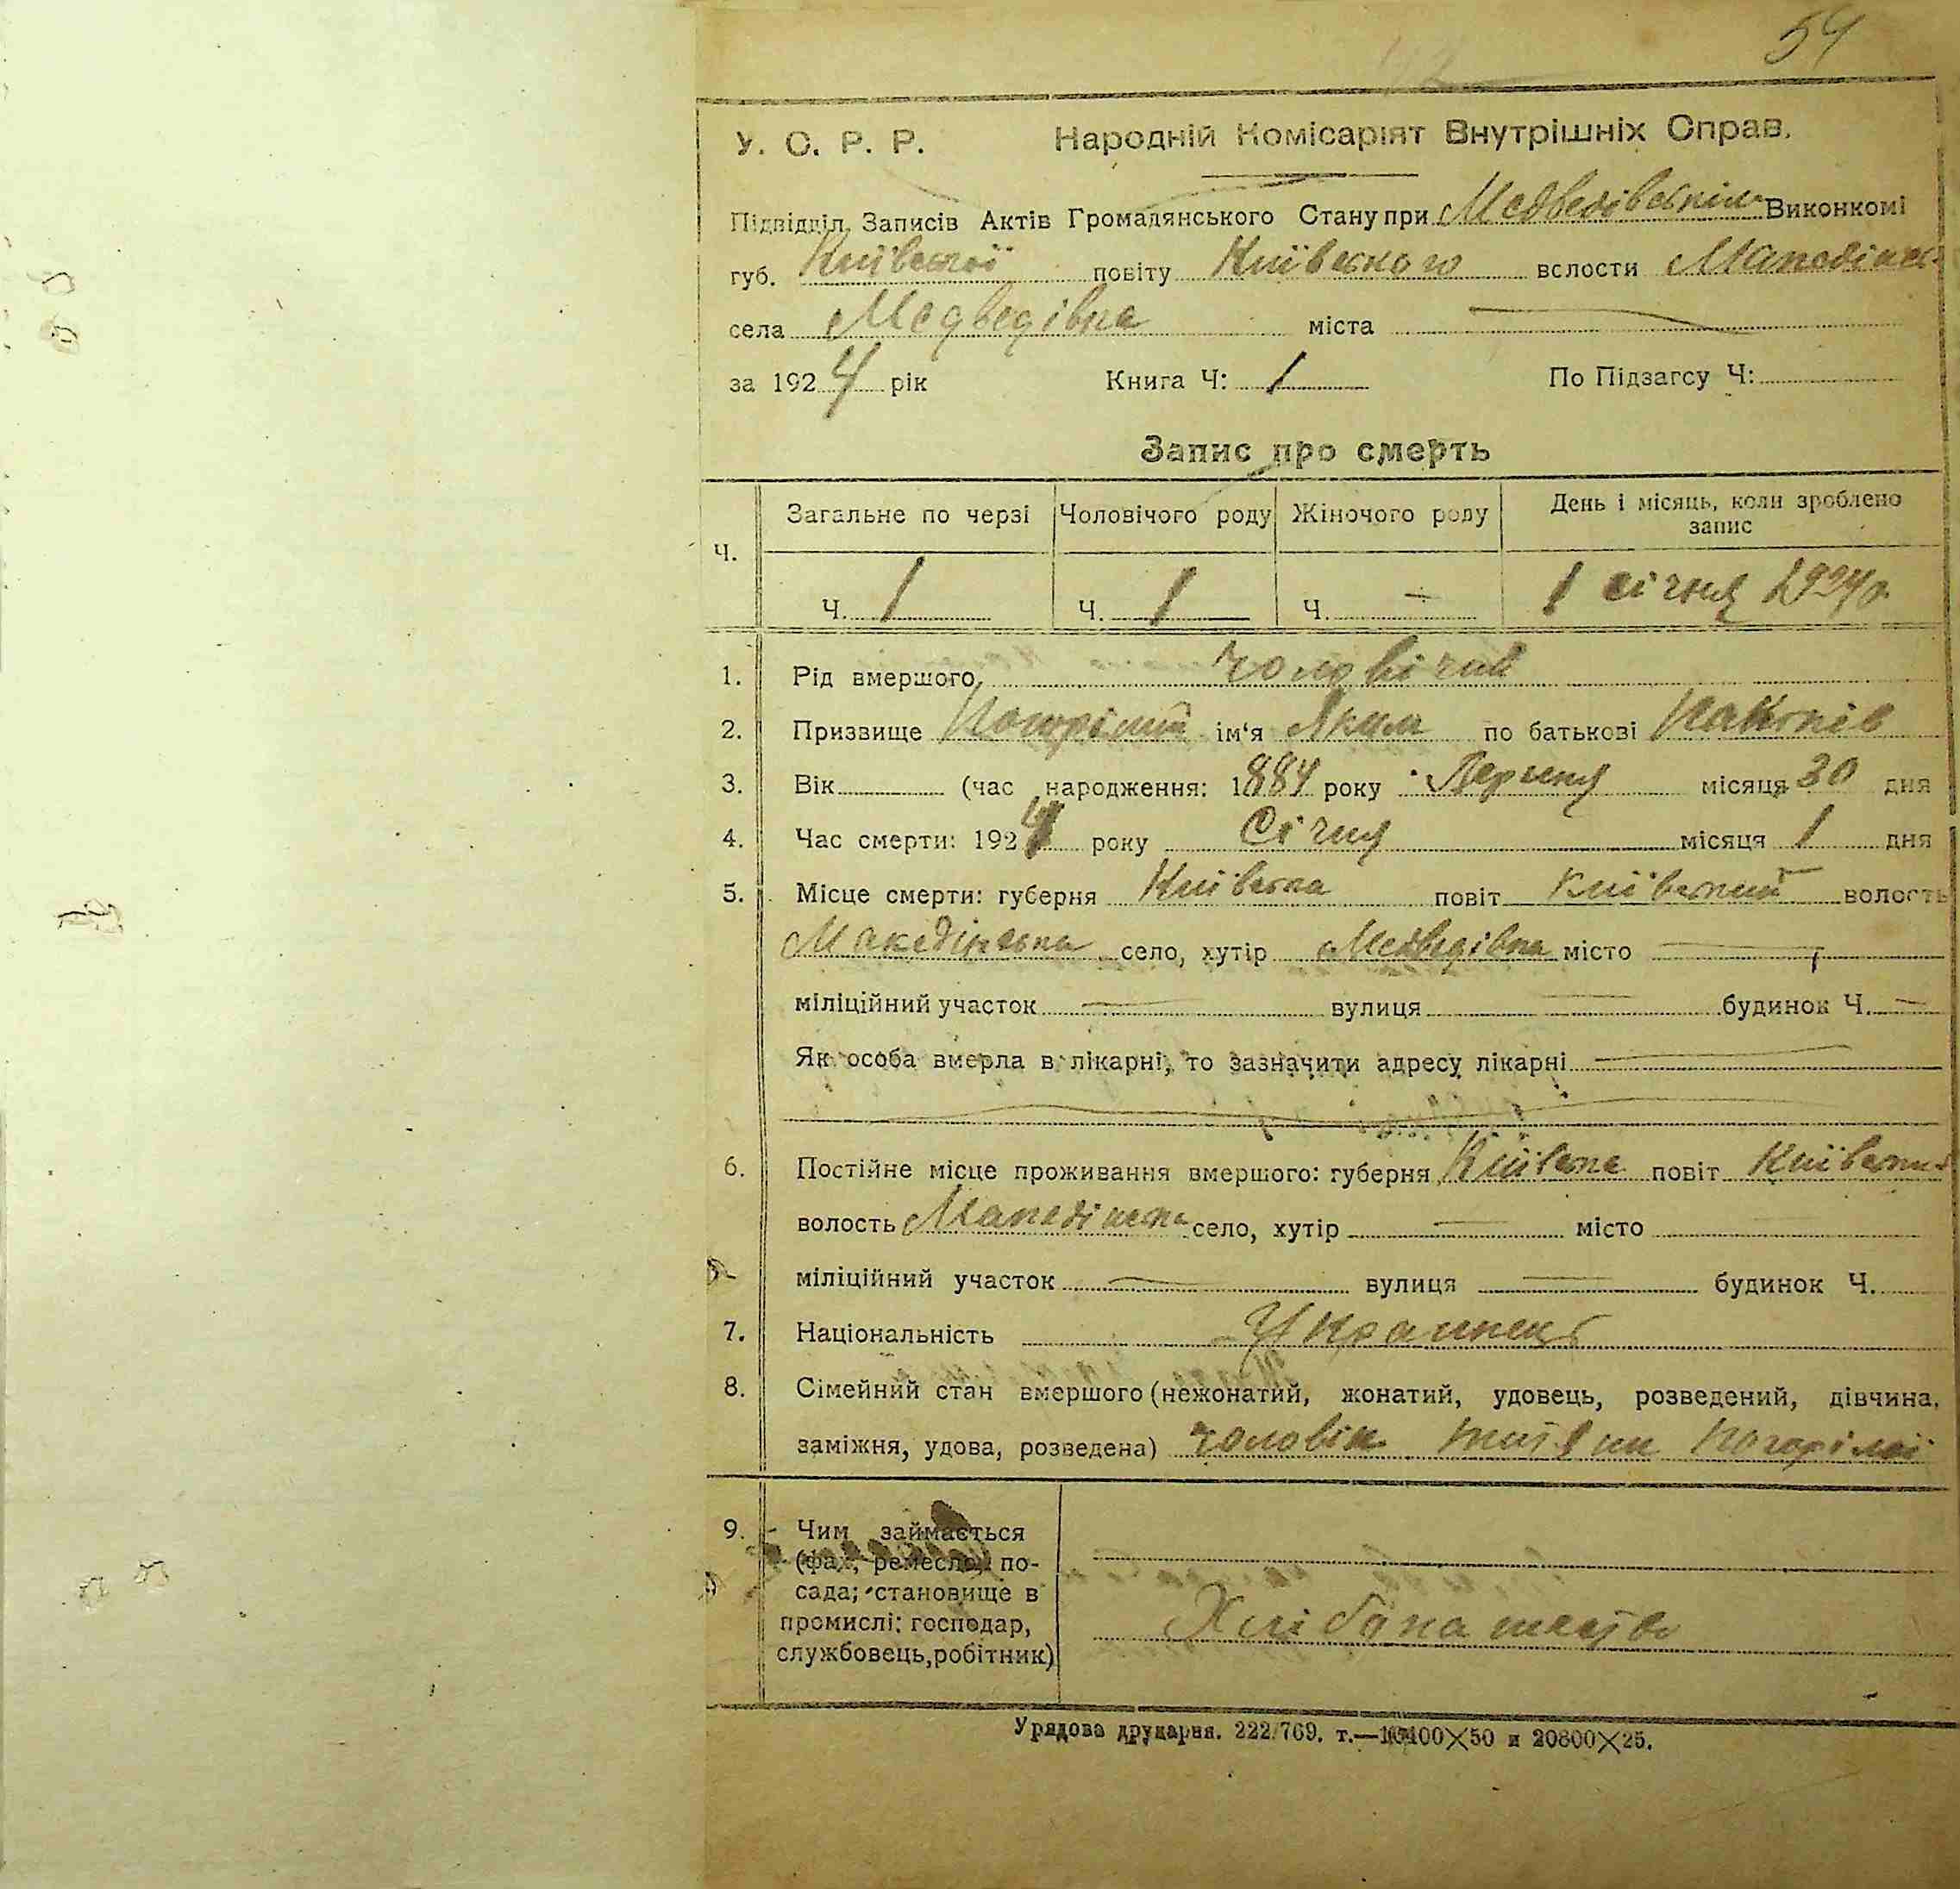 54
У. С. Р. Р. Народній Комісаріят Внутрішніх Справ.
Підвідділ Записів Актів Громадянського Стану при Медведівськім Виконкомі
губ. Київської повіту Київського волости
села Медведівка міста
за 1924 рік Книга Ч: 1 По Підзагсу Ч:
Запис про смерть
Загальне по черзі Чоловічого роду Жіночого роду День і місяць, коли зроблено
запис
Ч.
Ч. 1 Ч. 1 Ч. — 1 січня 1924 р.
1. Рід вмершого
2. Призвище ім'я Яким по батькові
3. Вік (час народження: 1884 року місяця 30 дня
4. Час смерти: 1924 року Січня місяця 1 дня
5. Місце смерти: губерня Київська повіт Київський волость
Македінська село, хутір Медведівка місто —
міліційний участок — вулиця — будинок Ч. —
Як особа вмерла в лікарні, то зазначити адресу лікарні —
6. Постійне місце проживання вмершого: губерня Київська повіт Київський
волость Македінська село, хутір — місто
міліційний участок — вулиця — будинок Ч.
7. Національність Украинець
8. Сімейний стан вмершого (нежонатий, жонатий, удовець, розведений, дівчина,
заміжня, удова, розведена) чоловік Погорілої
9. Чим займається
(фах, ремесло, по-
сада; становище в
промислі: господар,
службовець, робітник)
Хлібопашество
Урядова друкарня. 222/769. т.— 50 и 20800×25.